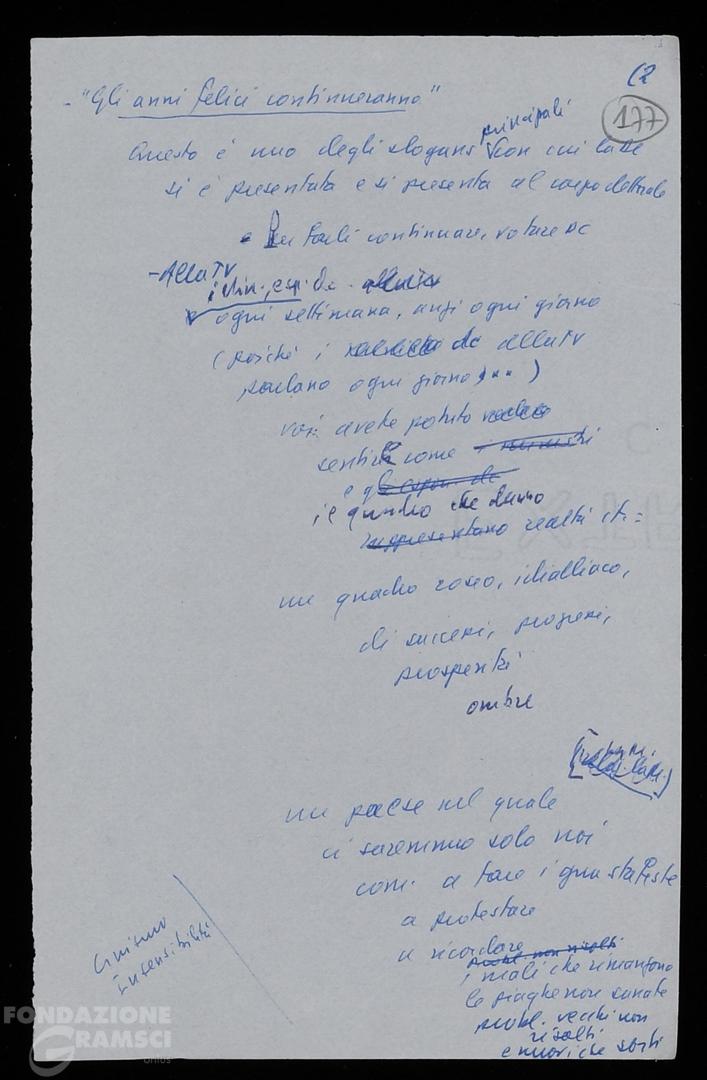 (2
177
- "Gli anni felici continueranno"
principali
Questo è uno degli slogans con cui la DC
si è presentata e si presenta al corpo elettorale
- Per farli continuare, votare DC
- Alla TV
ogni settimana, anzi ogni giorno
(poiché i dc alla TV
parlano ogni giorno...)
voi avete potuto
sentire come i ministri
e gli espon. dc
il quadro che danno
rappresentano realtà it.=
un quadro roseo, idilliaco,
di successi, progressi,
prosperità
ombre
un paese nel quale
ci saremmo solo noi
com. a fare i guastafeste
a protestare
a ricordare
probl. non risolti
i mali che rimangono
le piaghe non sanate
probl. vecchi non
risolti
e nuovi che sorti
Cinismo
Insensibilità
FONDAZIONE
GRAMSCI
onlus